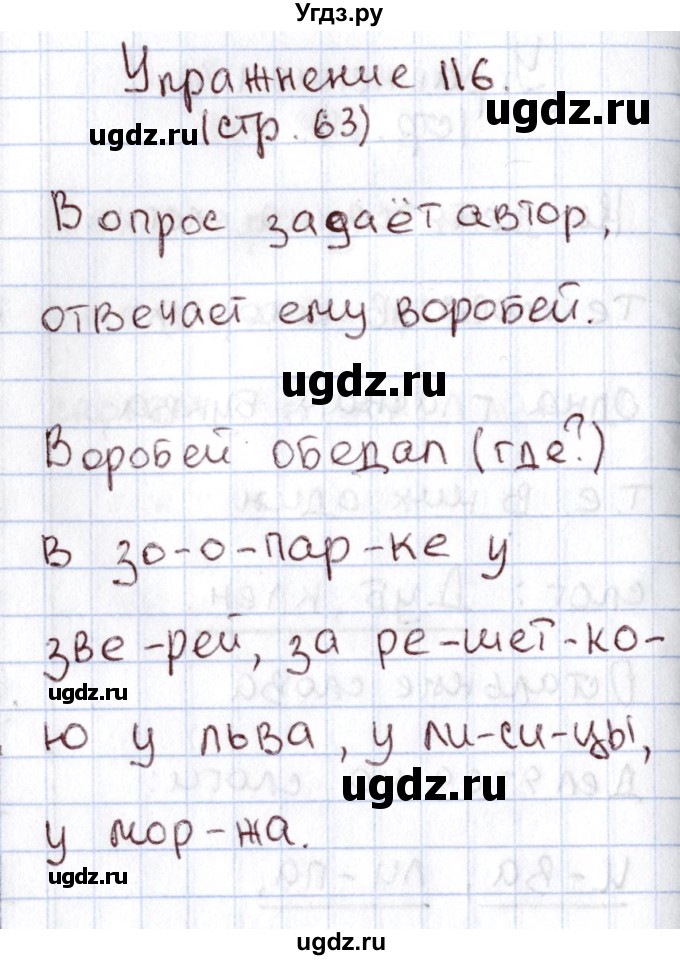 Угдз.ру
Упражнение 116.
ugdz.ru
ugdz.ru (стр. 63)
Вопрос задаёт автор,
отвечает ему воробей.
ugdz.ru
Воробей обедал (где?)
в зо-о-пар-ке у
зве-рей, за ре-шет-ко-
ugdz.ru
ю у льва, у ли-си-цы,
ugdz.ru
у мор-жа.
ugdz.ru
ugdz.ru